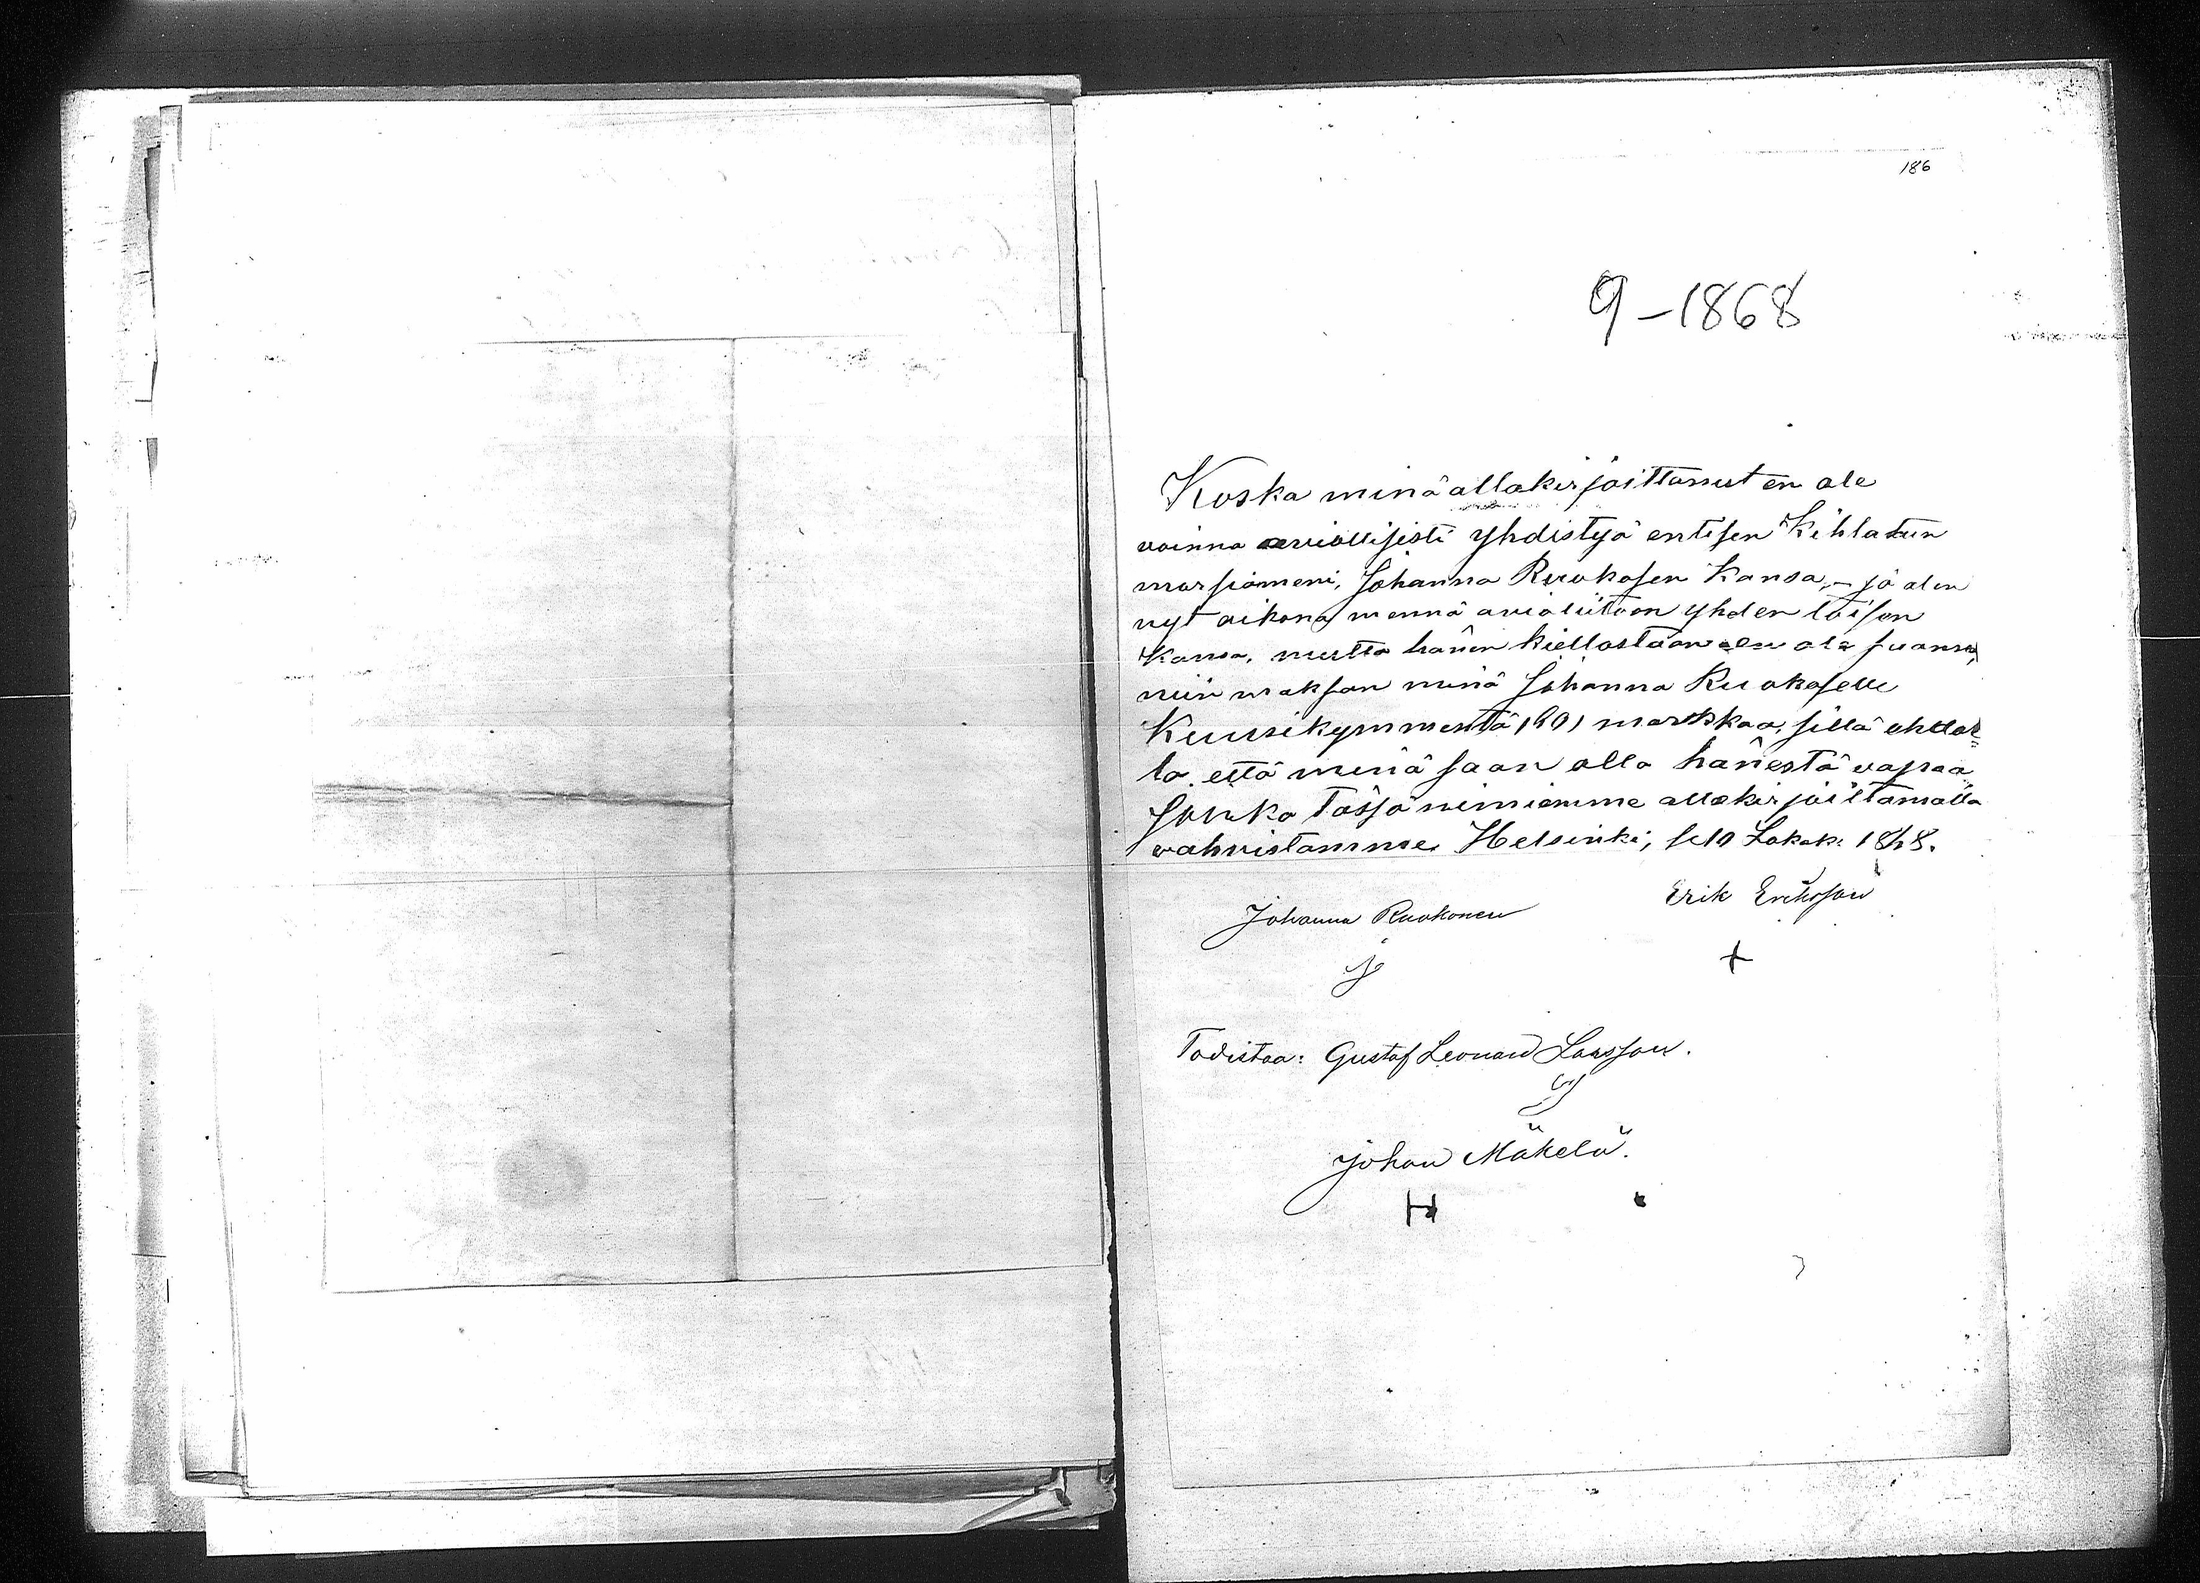 186
9-1868
Koska minä allakirjoittanut en ole
voinna aviollisesti yhdistyä entisen Kihlatun
morsiameni, Johanna Ruokosen Kansa, – ja olen
nyt aikona mennä avioliitoon yhden toisen
Kansa, mutta hänen kiellostaan en ole suanu,
niin maksan minä Johanna Ruokoselle
Kuusikymmentä (60) markkaa, sillä ehdol=
la että minä saan olla hänestä vapaa
Jonka Tässä nimiemme allekirjoittamalla
vahvistamme. Helsinki, se 10 Lokak. 1868.
Johanna Ruokonen Erik Eriksson
+
Todistaa: Gustaf Leonard Larsson.
Johan Mäkelä.
H